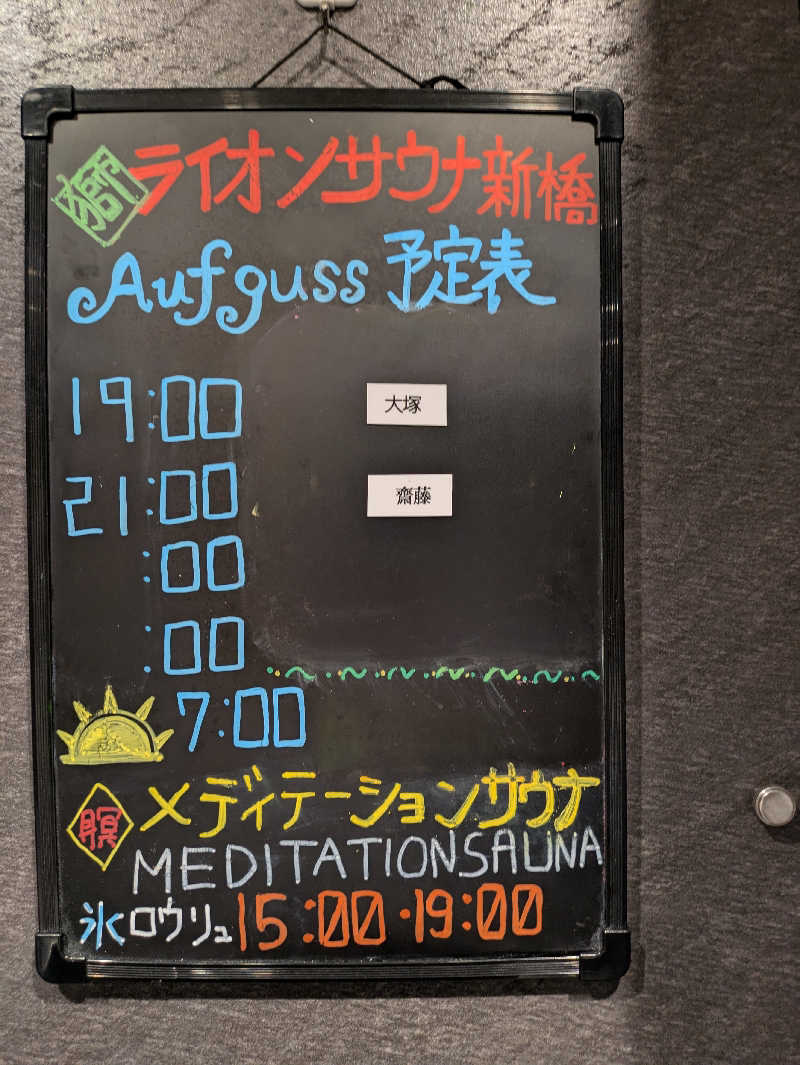 獅 ライオンサウナ新橋
Aufguss 予定表
19:00 大塚
21:00 齋藤
:00
:00
7:00
瞑 メディテーションサウナ
MEDITATIONSAUNA
氷ロウリュ 15:00・19:00